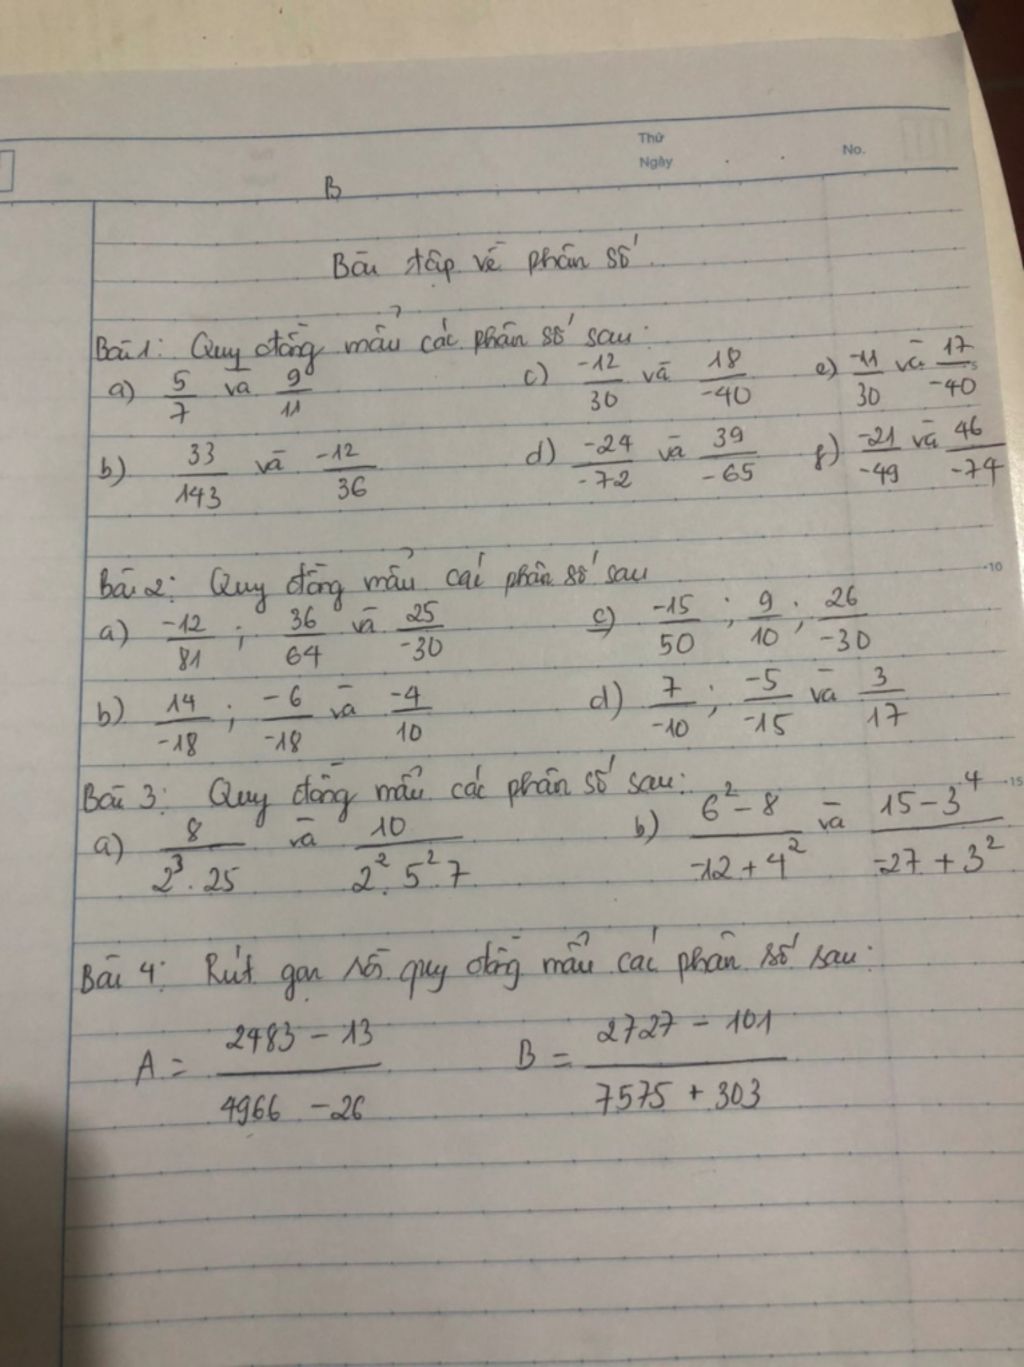 Thứ
Ngày
No.
B
Bài tập về phân số
Bài 1: Quy đồng mẫu các phân số sau:
a) 5/7 và 9/11 c) -12/30 và 18/-40 e) -11/30 và 17/-40
b) 33/143 và -12/36 d) -24/-72 và 39/-65 f) -21/-49 và 46/-74
Bài 2: Quy đồng mẫu các phân số sau
10
a) -12/81 ; 36/64 và 25/-30 c) -15/50 ; 9/10 ; 26/-30
b) 14/-18 ; -6/-18 và -4/10 d) 7/-10 ; -5/-15 và 3/17
Bài 3: Quy đồng mẫu các phân số sau:
15
a) 8/(2³ . 25) và 10/(2² . 5² 7) b) (6² - 8)/(-12 + 4²) và (15 - 3⁴)/(-27 + 3²)
Bài 4: Rút gọn rồi quy đồng mẫu các phân số sau:
A = (2483 - 13)/(4966 - 26) B = (2727 - 101)/(7575 + 303)